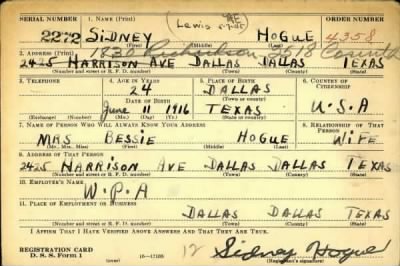 SERIAL NUMBER 1. NAME (Print) (Lewis
2272 SIDNEY HOGUE 4358
(First) (Middle) (Last)
2. ADDRESS (Print) 1832
2425 HARRISON AVE DALLAS DALLAS TEXAS
(Number and street or R. F. D. number) (Town) (County) (State)
3. TELEPHONE 4. AGE IN YEARS 5. PLACE OF BIRTH 6. COUNTRY OF CITIZENSHIP
24 DALLAS
DATE OF BIRTH (Town or county)
June 11 1916 TEXAS U.S.A
(Exchange) (Number) (Mo.) (Day) (Yr.) (State or country)
7. NAME OF PERSON WHO WILL ALWAYS KNOW YOUR ADDRESS 8. RELATIONSHIP OF THAT PERSON
MRS BESSIE HOGUE WIFE
(Mr., Mrs., Miss) (First) (Middle) (Last)
9. ADDRESS OF THAT PERSON
2425 HARRISON AVE DALLAS DALLAS TEXAS
(Number and street or R. F. D. number) (Town) (County) (State)
10. EMPLOYER'S NAME
W.P.A
11. PLACE OF EMPLOYMENT OR BUSINESS
DALLAS DALLAS TEXAS
(Number and street or R. F. D. number) (Town) (County) (State)
I AFFIRM THAT I HAVE VERIFIED ABOVE ANSWERS AND THAT THEY ARE TRUE.
REGISTRATION CARD
D. S. S. Form 1 16—17105 12 Sidney Hogue
(Registrant's signature)